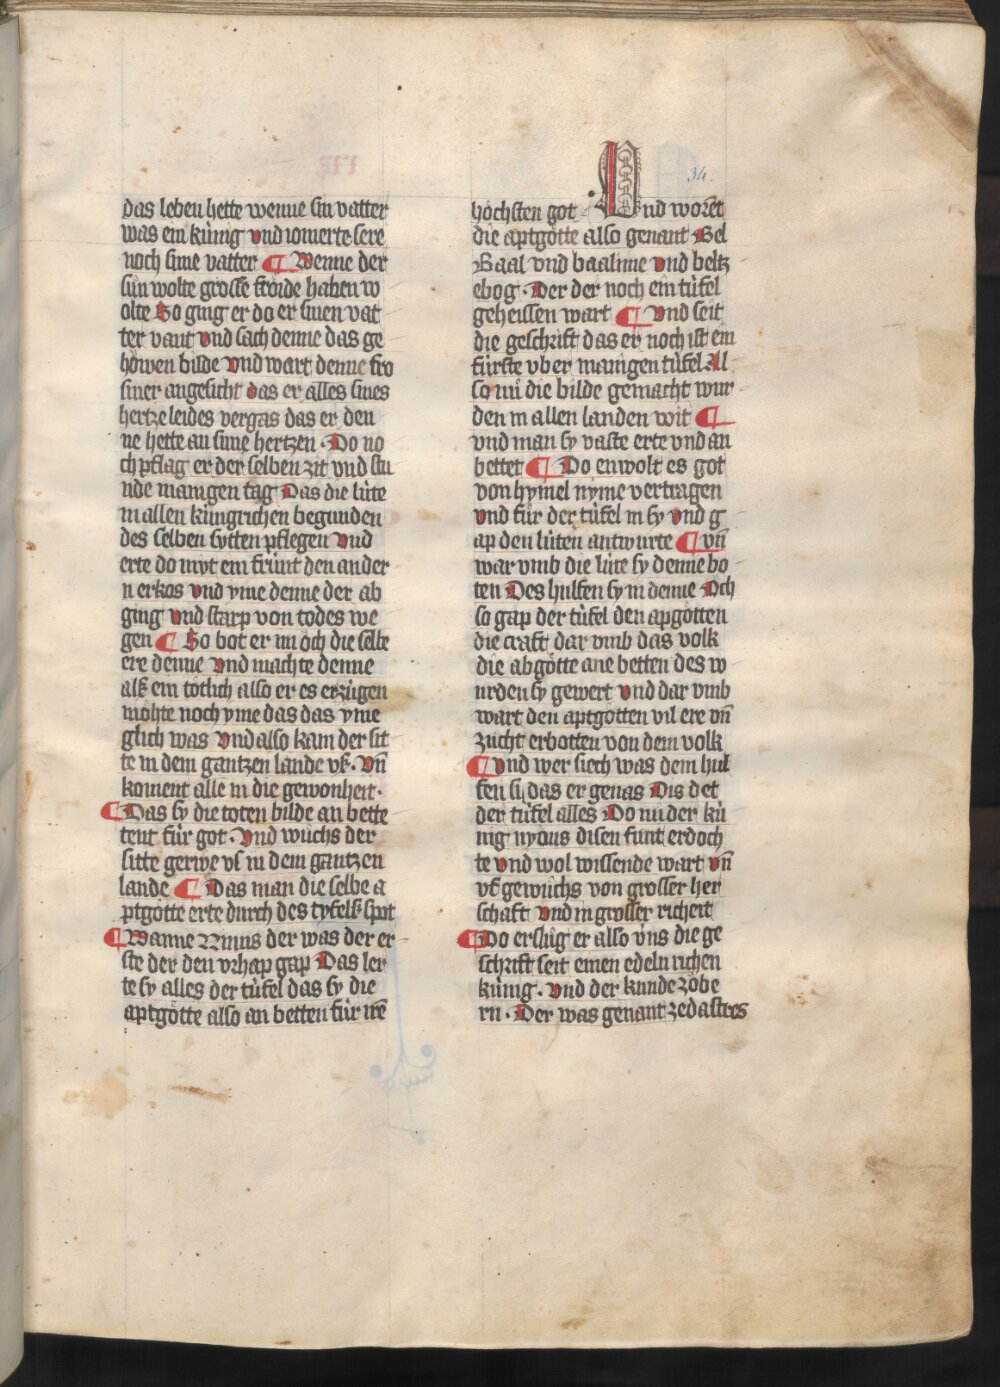 34.
das leben hette wenne sin vatter
was ein kùnig vnd iomerte sere
noch sime vatter ¶ Wenne der
sùn wolte grosse froide haben w
olte So ging er do er sinen vat
ter vant vnd sach denne das ge
höwen bilde vnd wart denne fro
siner angesicht das er alles sines
hertzeleides vergas das er den
ne hette an sime hertzen · Do no
ch pflag er der selben zit vnd stu
nde manigen tag Das die lùte
in allen kùngrichen begunden
des selben sytten pflegen vnd
erte do myt ein frùnt den ander
n erkos vnd yme denne der ab
ging vnd starp von todes we
gen ¶ So bot er im och die selbe
ere denne vnd machte denne
als ein tötlich also er es erzùgen
mohte noch yme das das yme
glich was vnd also kam der sit
te in dem gantzen lande vs · vn̄
koment alle in die gewonheit ·
¶ Das sy die toten bilde an bette
tent fùr got · vnd wùchs der
sitte gerwe vs in dem gantzen
lande ¶ Das man die selbe a
ptgötte erte durch des tyfels spot
¶ Wanne Ninus der was der er
ste der den vrhap gap Das ler
te sy alles der tùfel das sy die
aptgötte also an betten fùr irē
höchsten got Vnd worēt
die aptgötte also genant Bel
Baal vnd baalime vnd beltz
ebog · Der der noch ein tùfel
geheissen wart ¶ vnd seit
die geschrift das er noch ist ein
fùrste vber manigen tùfel Al
so nù die bilde gemacht wur
den in allen landen wit ¶
vnd man sy vaste erte vnd an
bettet ¶ Do enwolt es got
von hymel nyme vertragen
vnd fùr der tùfel in sy vnd g
ap den lùten antwurte ¶ vn̄
war vmb die lùte sy denne bo
ten Des hulfen sy in denne Och
so gap der tùfel den apgötten
die craft dar vmb das volk
die abgötte ane betten des w
urden sy gewert vnd dar vmb
wart den aptgötten vil ere vn̄
zùcht erbotten von dem volk
¶ vnd wer siech was dem hul
fen sy das er genas Dis det
der tùfel alles Do nu der kù
nig nynus disen funt erdoch
te vnd wol wissende wart vn̄
vs gewùchs von grosser her
schaft vnd in grosser richeit
¶ Do erslùg er also vns die ge
schrift seit einen edeln richen
kùnig · vnd der kunde zöbe
rn · Der was genant zedastres